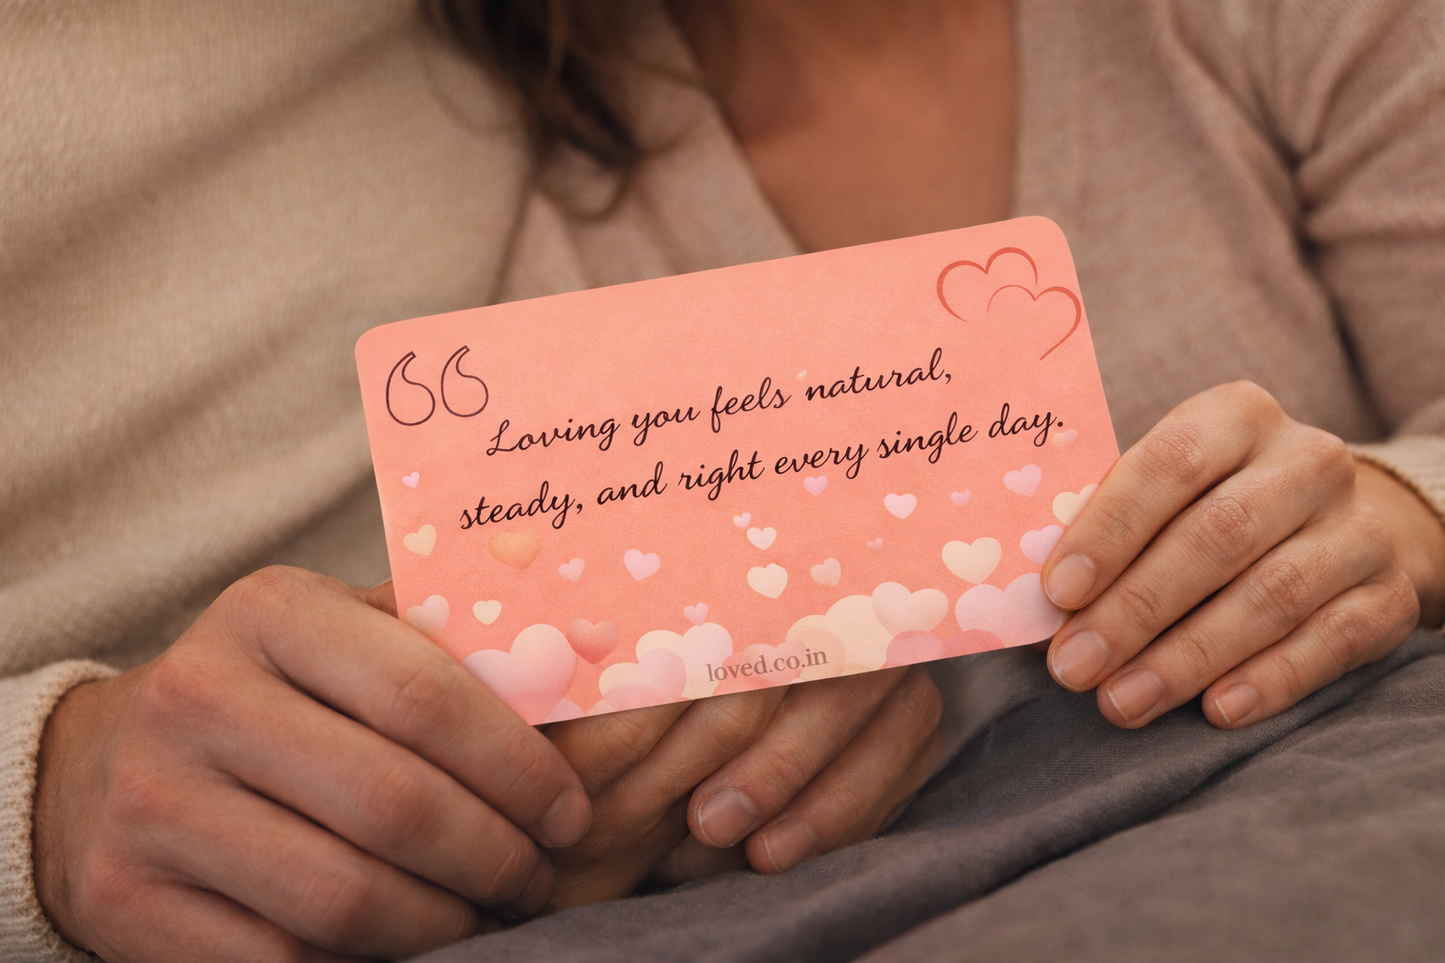 Loving you feels natural,
steady, and right every single day.
loved.co.in